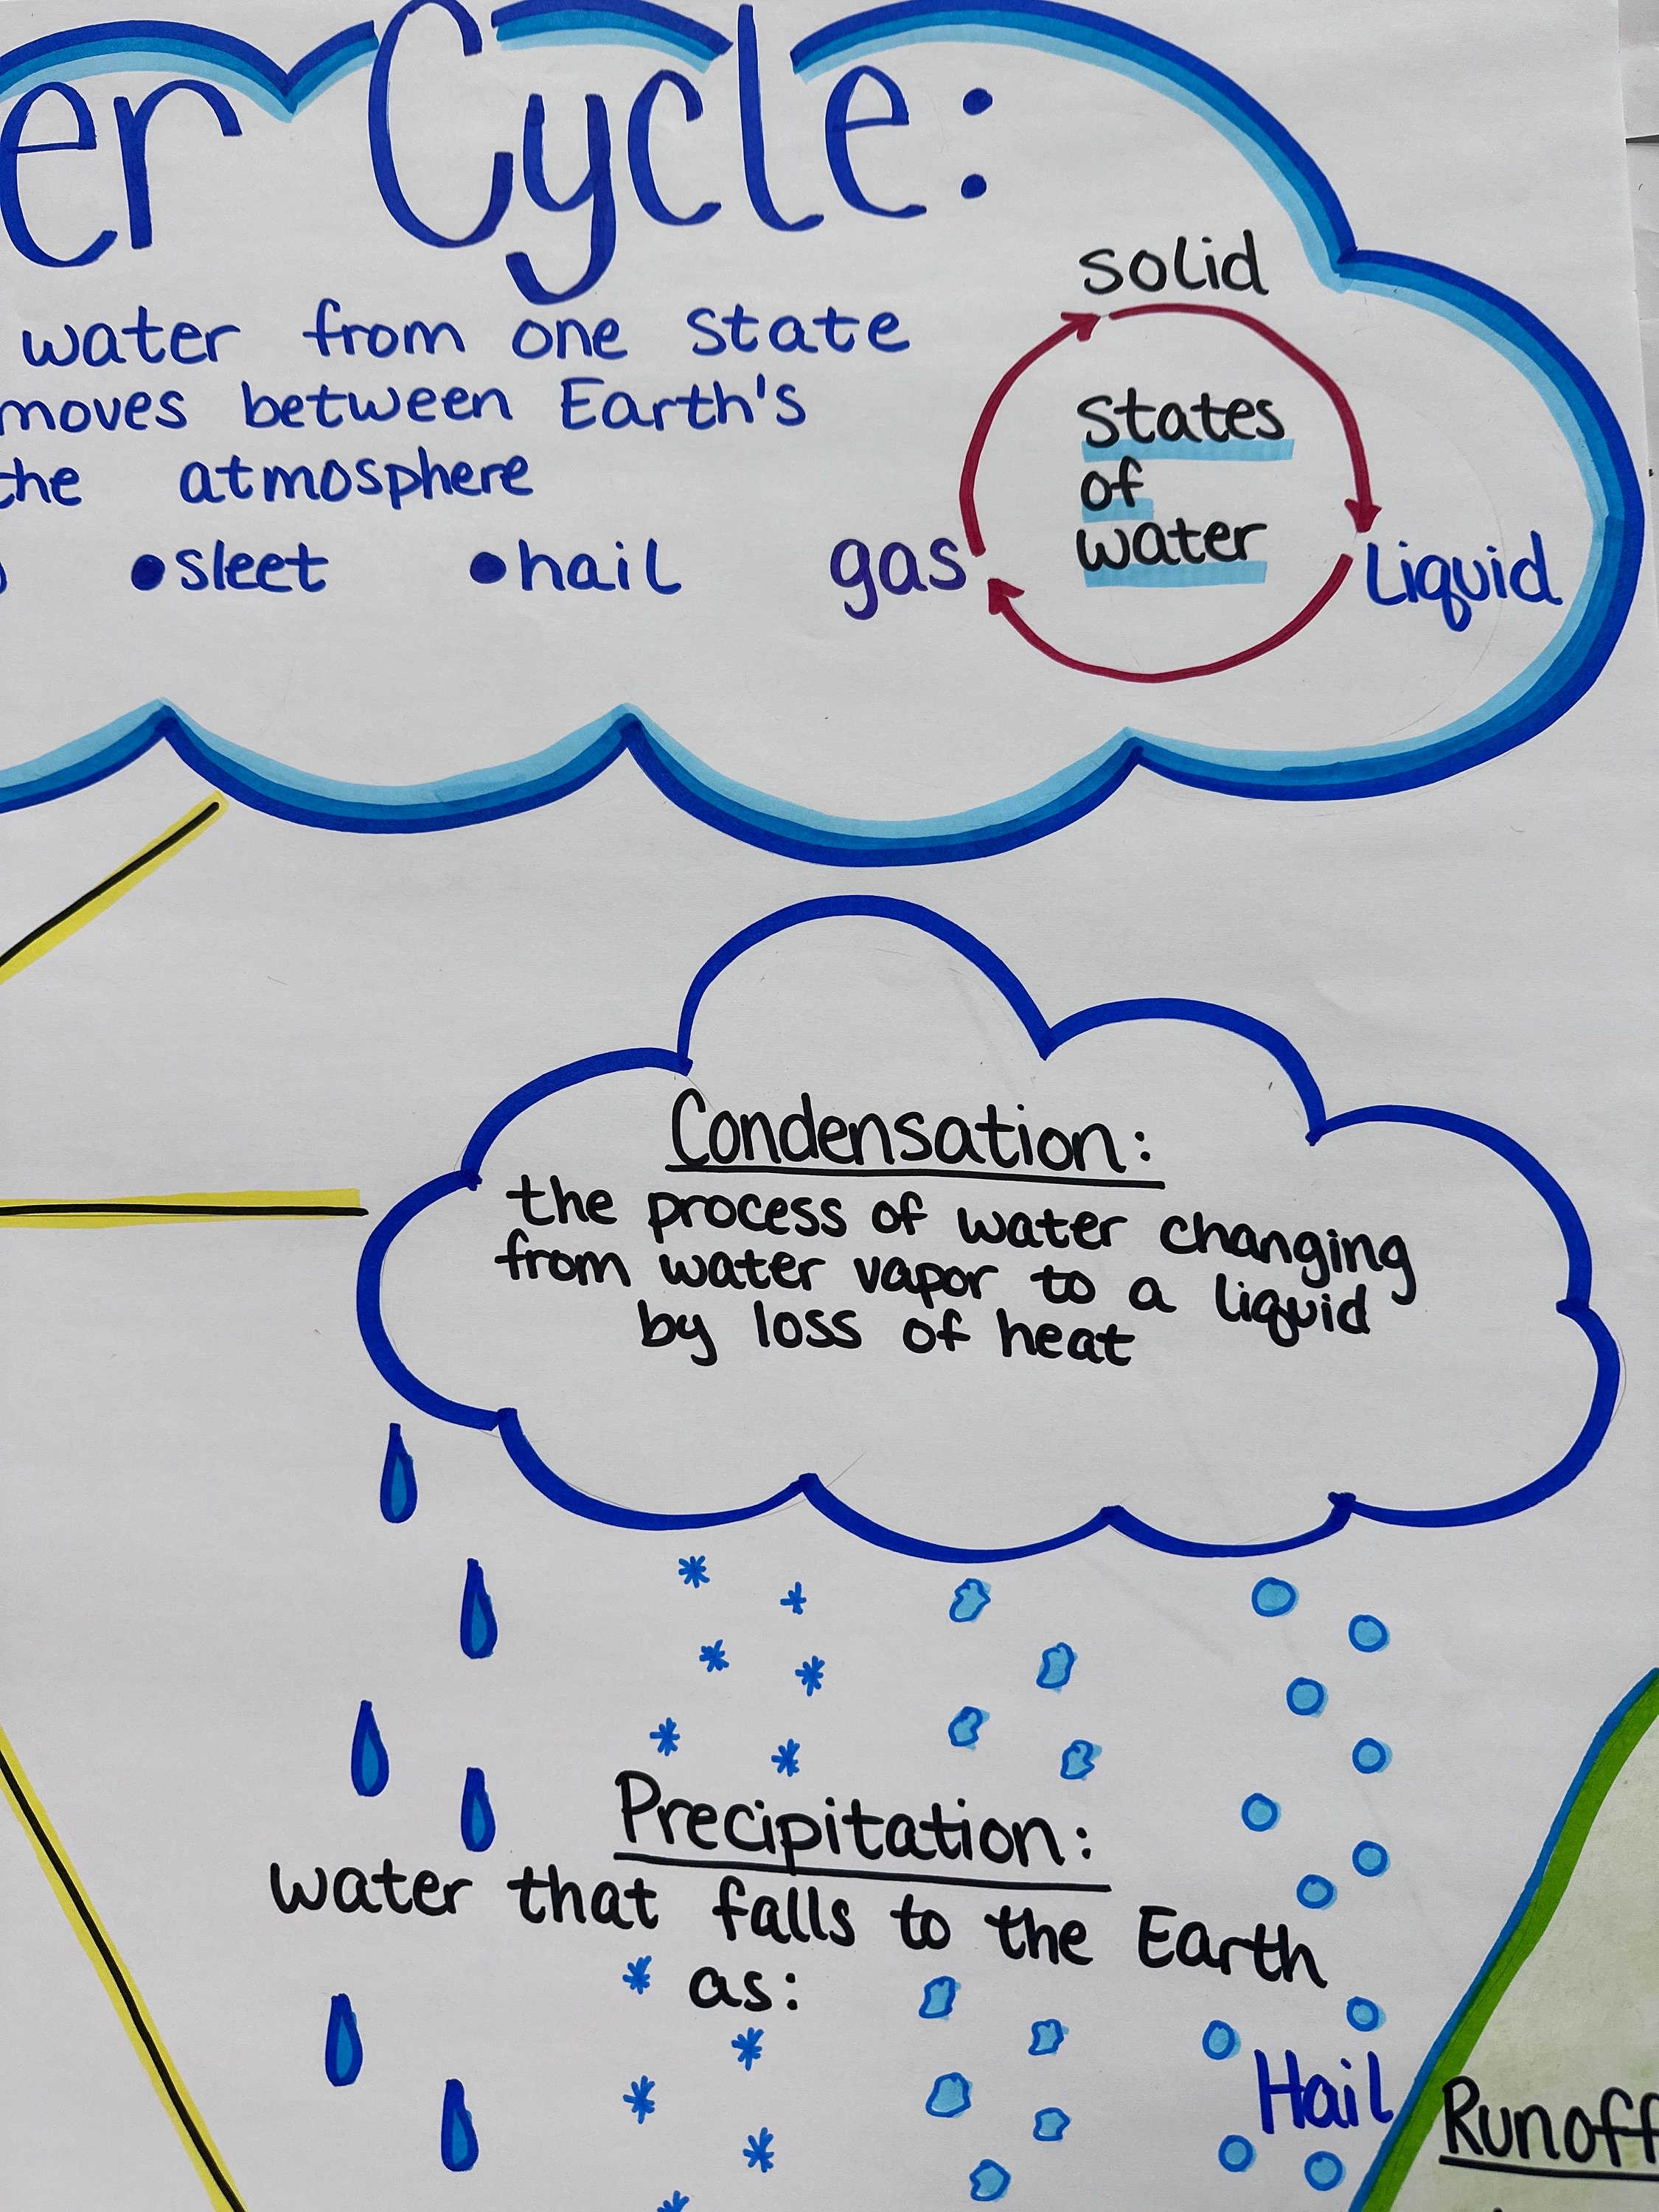 er Cycle:
water from one state
moves between Earth's
the atmosphere
•sleet •hail
solid
States
of
water
gas
Liquid
Condensation:
the process of water changing
from water vapor to a liquid
by loss of heat
Precipitation:
water that falls to the Earth
as:
Hail
Runoff